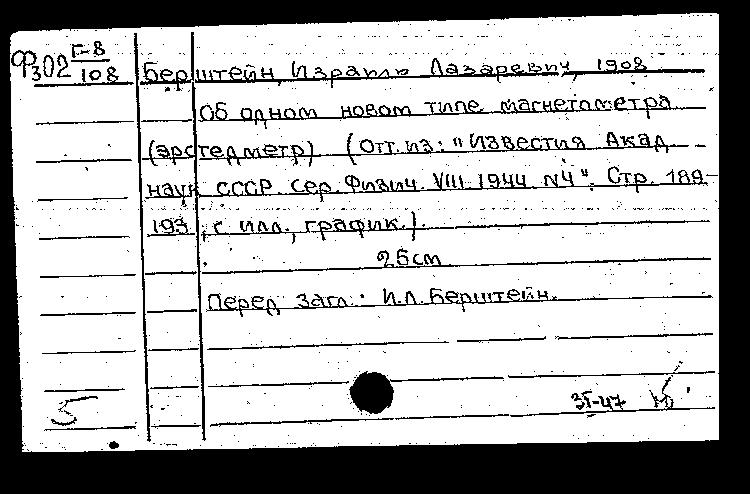 Ф302 Г-8/108
Берштейн, Израиль Лазаревич, 1908
Об одном новом типе магнетометра
(эрстедметр) (Отт. из: "Известия Акад
наук СССР. Сер. Физич. VIII. 1944 N4". Стр. 189-
193, с илл., график.).
25см
Перед загл.: И.Л. Берштейн.
5
3I-47